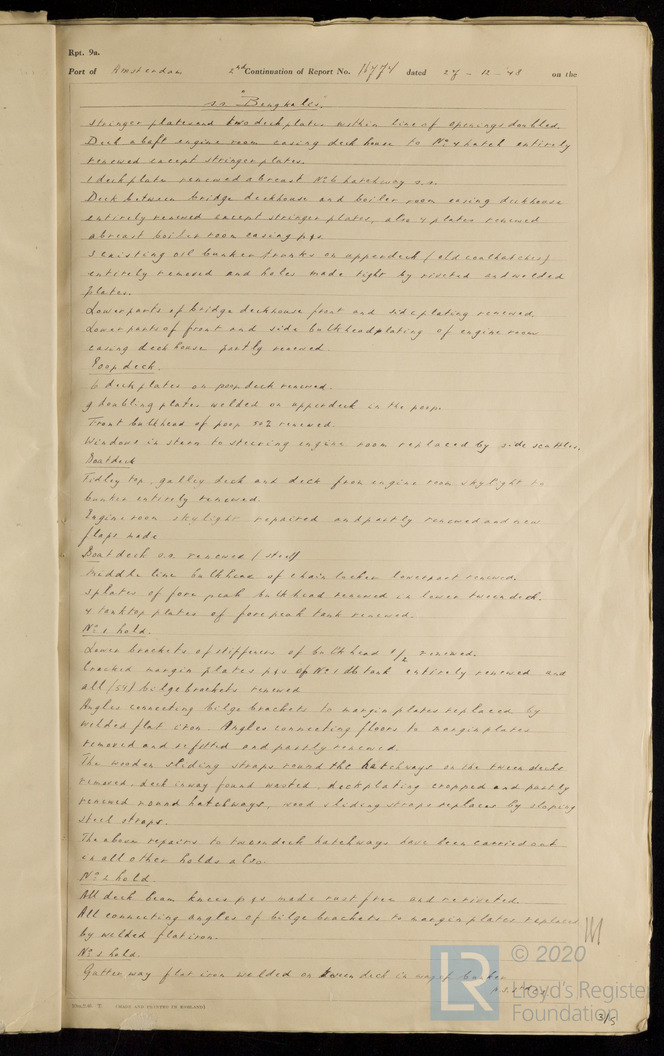 Rpt. 9a.
Port of Amsterdam 2nd Continuation of Report No. 16774 dated 27 - 12 - 48 on the
s.s. "Bengkalis".
Stringer plates and two deck plates within line of openings doubled.
Deck abaft engine room casing deck house to No. 4 hatch entirely
renewed except stringer plates.
1 deck plate renewed abreast No. 6 hatchway s.s.
Deck between bridge deckhouse and boiler room casing deckhouse
entirely renewed except stringer plates, also 4 plates renewed
abreast boiler room casing p&s.
3 existing oil bunker trunks on upperdeck (old coalhatches)
entirely removed and holes made tight by riveted and welded
plates.
Lower parts of bridge deckhouse front and side plating renewed
Lower parts of front and side bulkhead plating of engine room
casing deck house partly renewed.
Poop deck.
6 deck plates on poop deck renewed.
9 doubling plates welded on upperdeck in the poop.
Front bulkhead of poop 50% renewed.
Windows in stern to steering engine room replaced by side scuttles.
Boatdeck
Fidley top, galley deck and deck from engine room skylight to
bunker entirely renewed.
Engine room skylight repaired and partly renewed and new
flaps made
Boat deck renewed (steel)
Middle line bulkhead of chain locker lower part renewed.
3 plates of fore peak bulkhead renewed in lower tweendeck.
4 tanktop plates of fore peak tank renewed.
No. 1 hold.
Lower brackets of stiffeners of bulkhead 1/2 renewed.
Cracked margin plates p&s of No. 1 db tank entirely renewed and
all (34) bilge brackets renewed
Angles connecting bilge brackets to margin plates replaced by
welded flat iron. Angles connecting floors to margin plates
removed and refitted and partly renewed.
The wooden sliding straps round the hatchways on the tween decks
removed, deck inway found wasted, deckplating cropped and partly
renewed round hatchways, wood sliding straps replaced by sloping
steel straps.
The above repairs to tweendeck hatchways have been carried out
in all other holds also.
No. 2 hold
All deck beam knees p&s made rust free and reriveted.
All connecting angles of bilge brackets to margin plates replaced
by welded flat iron.
No. 3 hold.
Gutter way flat iron welded on tween deck in way of bunker
© 2020
LR
Lloyd's Register
Foundation
3/5